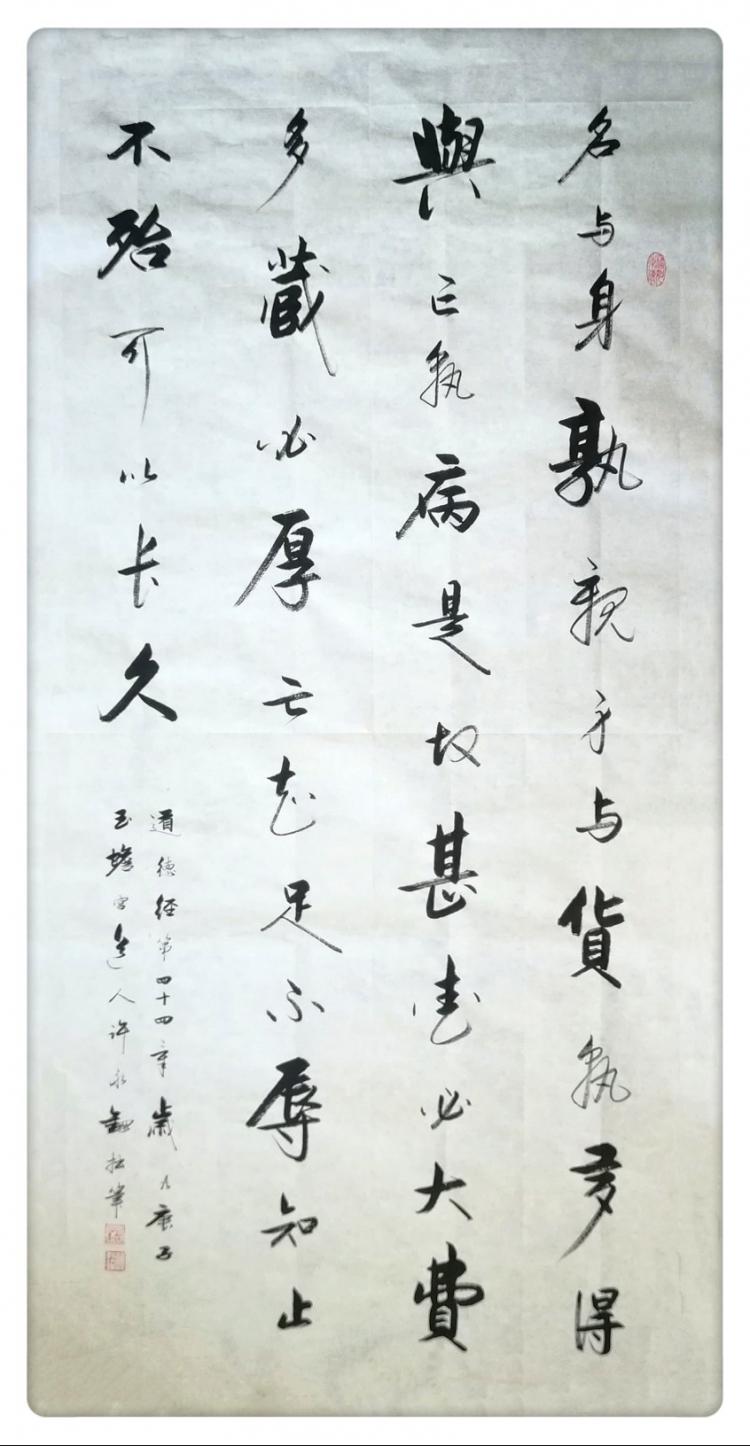 名与身孰親身与貨孰多得
與亡孰病是故甚愛必大費
多藏必厚亡知足不辱知止
不殆可以长久
道德经第四十四章歲次庚子
玉蟾宫道人许永拙筆